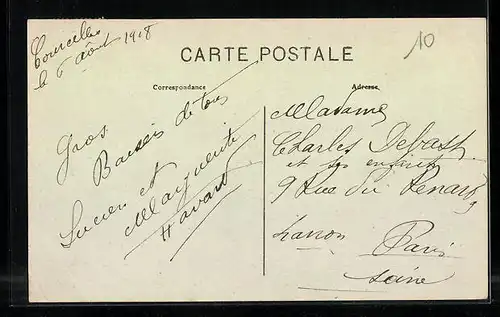 le 6 août 1918
10
CARTE POSTALE
Correspondance
Adresse
Gros
Baisers de tous
Lucien et
Marguerite
Havart
Madame
Charles Debast
et ses enfants
9 Rue du Renard
Paris
Seine